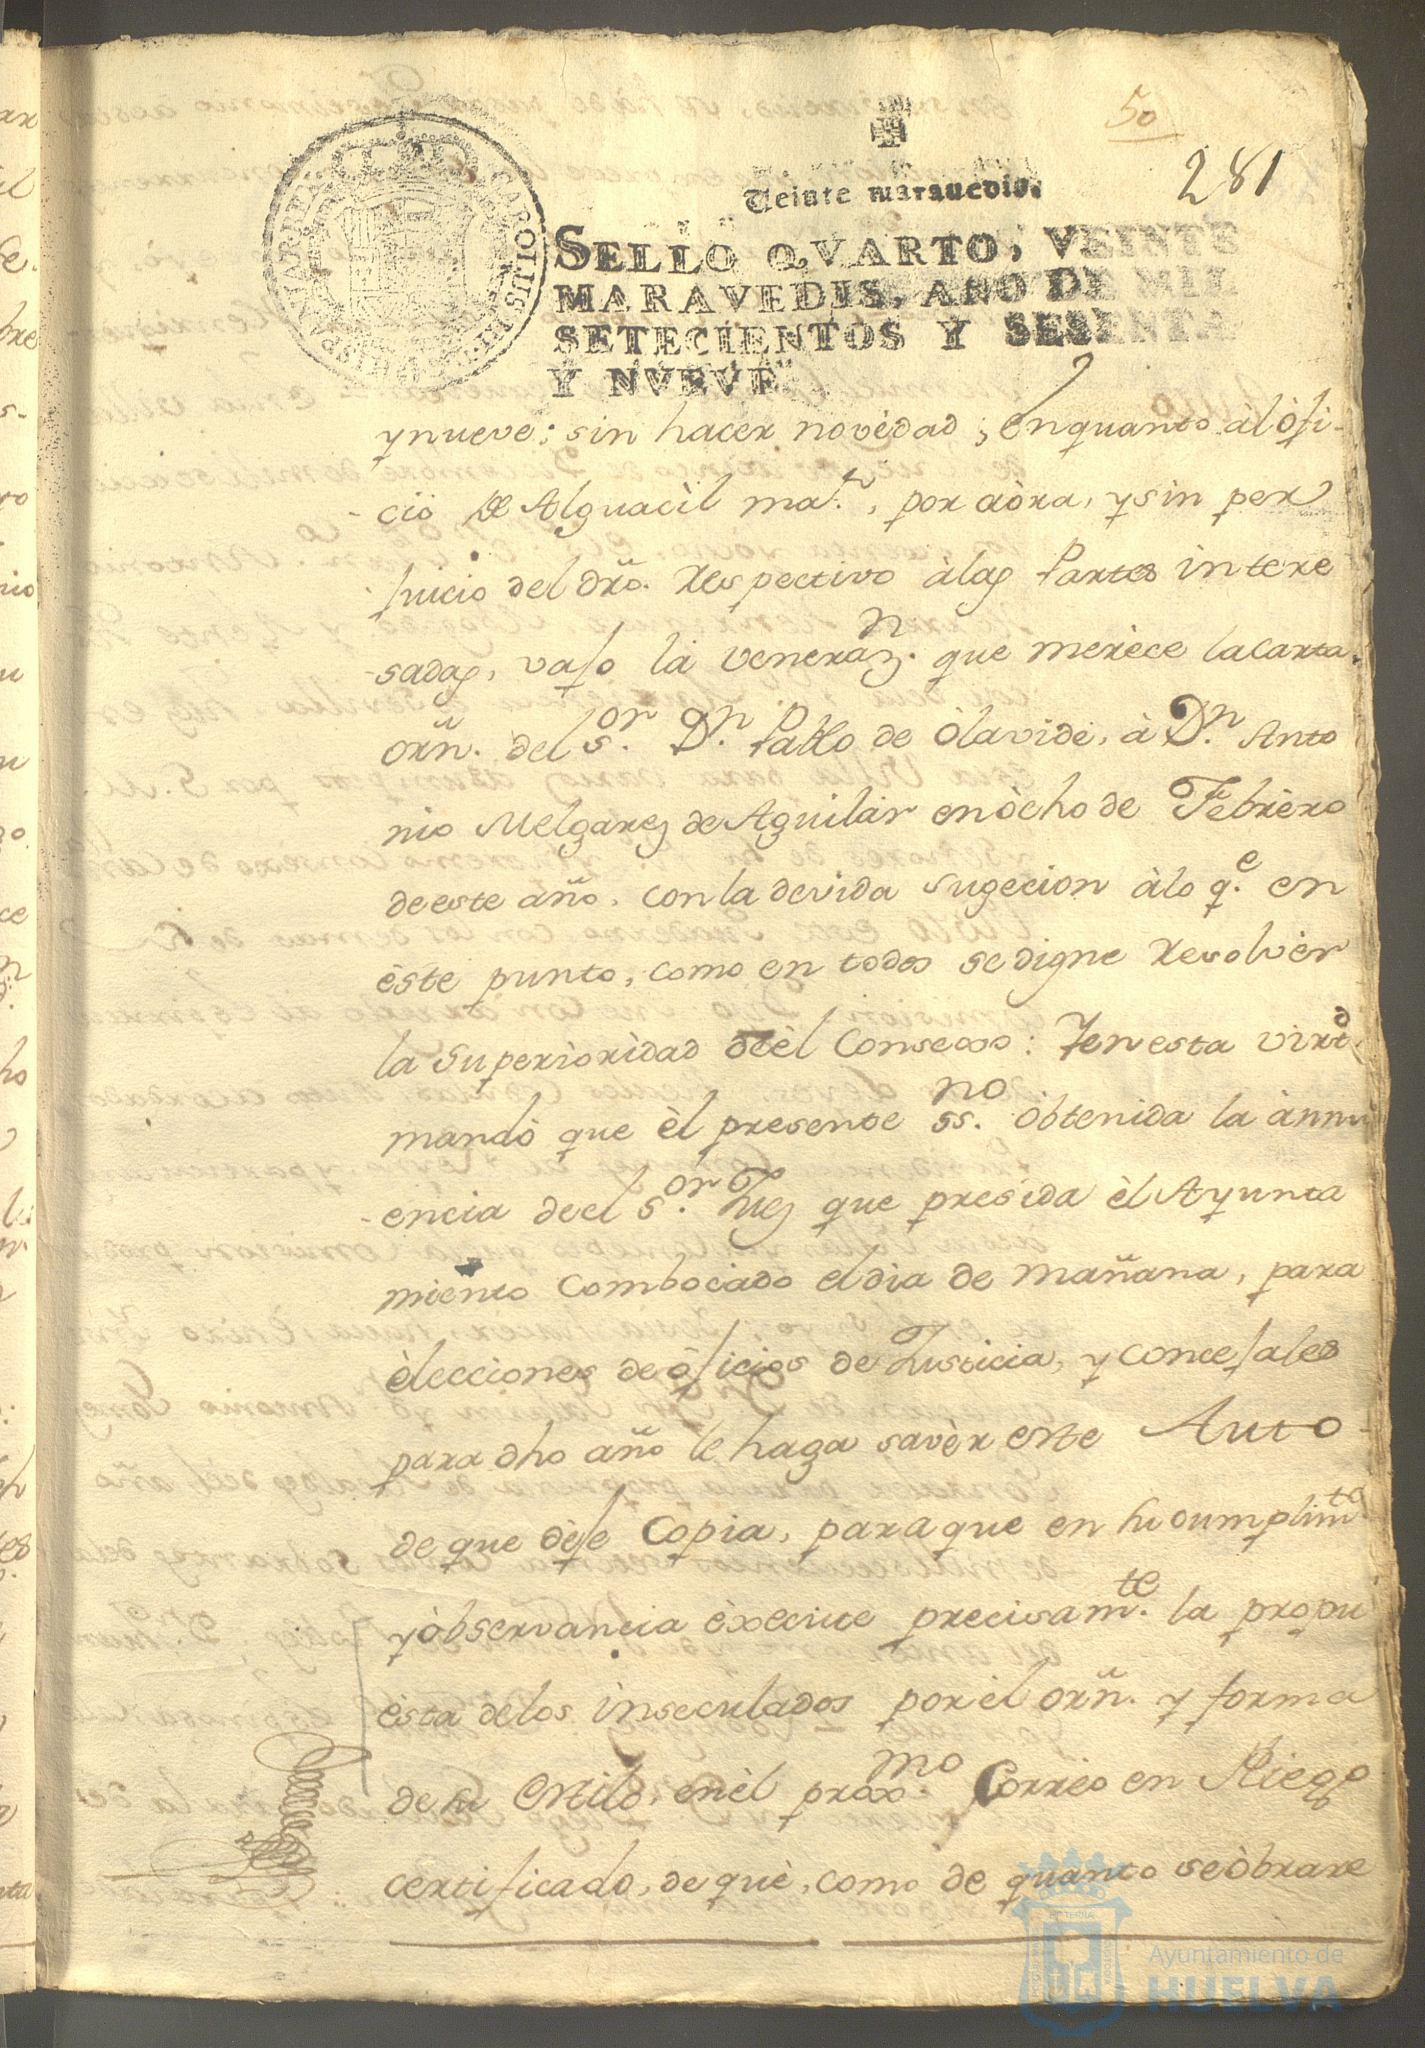 50
281
Veinte maravedis.
CAROLUS III
HISPANIAR. REX
SELLO QVARTO, VEINTE
MARAVEDIS, AÑO DE MIL
SETECIENTOS Y SESENTA
Y NVEVE.
ynueve: sin hacer novèdad, enquanto al òfi-
-ciò de Alguacìl mar., por aòra, ysin per
juicio del dro. respectivo àlas Partes intere
sadas, vajo la veneraz.n que merèce lacarta
orñ. del s.or D.n Pablo de òlavide, à D.n Anto
nio Melgarez de Aguilar enòcho de Febrèro
deeste año, con la devida sugecion àlo q.e en
èste punto, como en todos se digne resolvèr
la superiòridad deèl Consexo: Yenesta virt.d
mandò que èl presente ss.no òbtenida la ànnu
-encia deel s.or Juez que presida èl Ayunta
miento combocado eldia de mañana, para
èlecciones de òficios de Justicia, y concejales
para dho año le haga savèr este Auto
de que dèje Copia, paraque en su cumplim.to
yòbservancia èxecute precisam.te la propu
èsta delos ìnseculados por èl orñ. y forma
de su estilo, enèl prox.mo Correo en Pliego
certificado, de què, como de quanto seòbrare
Ayuntamiento de
HUELVA